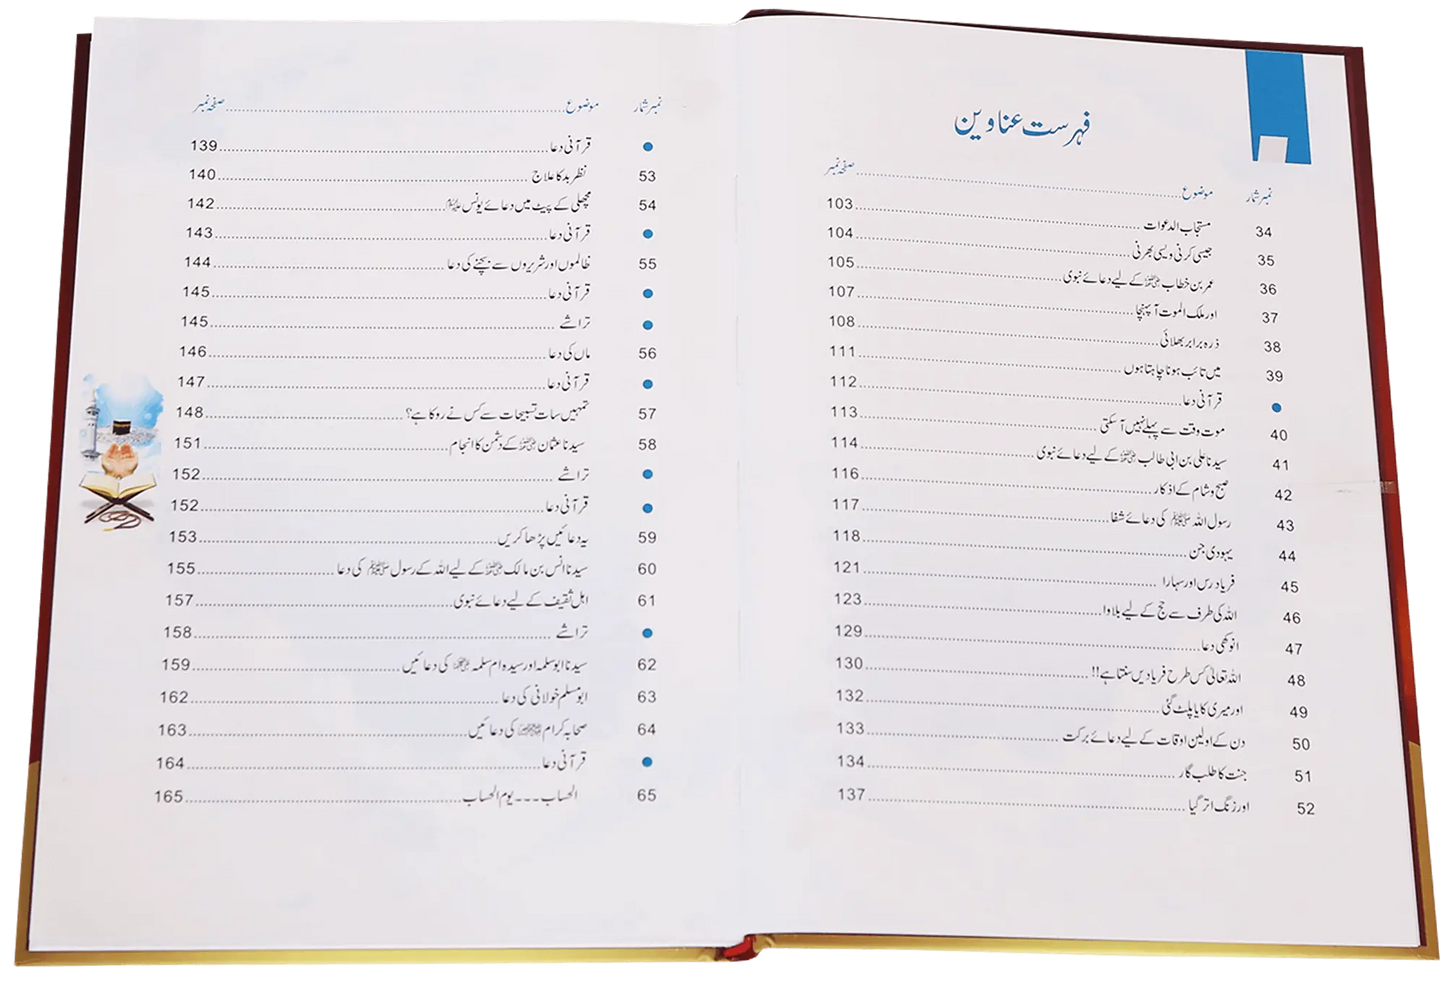 فہرست عناوین
نمبر شمار موضوع صفحہ نمبر
34 مستجاب الدعوات 103
35 جیسی کرنی ویسی بھرنی 104
36 عمر بن خطاب رضی اللہ عنہ کے لیے دعائے نبوی 105
37 اور ملک الموت آ پہنچا 107
38 ذرہ برابر بھلائی 108
39 میں تائب ہونا چاہتا ہوں 111
● قرآنی دعا 112
40 موت وقت سے پہلے نہیں آ سکتی 113
41 سیدنا علی بن ابی طالب رضی اللہ عنہ کے لیے دعائے نبوی 114
42 صبح و شام کے اذکار 116
43 رسول اللہ ﷺ کی دعائے شفا 117
44 یہودی جن 118
45 فریاد رس اور سہارا 121
46 اللہ کی طرف سے حج کے لیے بلاوا 123
47 انوکھی دعا 129
48 اللہ تعالیٰ کس طرح فریادیں سنتا ہے!! 130
49 اور میری کایا پلٹ گئی 132
50 دن کے اولین اوقات کے لیے دعائے برکت 133
51 جنت کا طلب گار 134
52 اور زنگ اتر گیا 137
نمبر شمار موضوع صفحہ نمبر
● قرآنی دعا 139
53 نظر بد کا علاج 140
54 مچھلی کے پیٹ میں دعائے یونس علیہ السلام 142
● قرآنی دعا 143
55 ظالموں اور شریروں سے بچنے کی دعا 144
● قرآنی دعا 145
● تراشے 145
56 ماں کی دعا 146
● قرآنی دعا 147
57 تمہیں سات تسبیحات سے کس نے روکا ہے؟ 148
58 سیدنا عثمان رضی اللہ عنہ کے دشمن کا انجام 151
● تراشے 152
● قرآنی دعا 152
59 یہ دعائیں پڑھا کریں 153
60 سیدنا انس بن مالک رضی اللہ عنہ کے لیے اللہ کے رسول ﷺ کی دعا 155
61 اہل ثقیف کے لیے دعائے نبوی 157
● تراشے 158
62 سیدنا ابو سلمہ اور سیدہ ام سلمہ رضی اللہ عنہما کی دعائیں 159
63 ابو مسلم خولانی کی دعا 162
64 صحابہ کرام رضی اللہ عنہم کی دعائیں 163
● قرآنی دعا 164
65 الحساب ۔۔۔ یوم الحساب 165